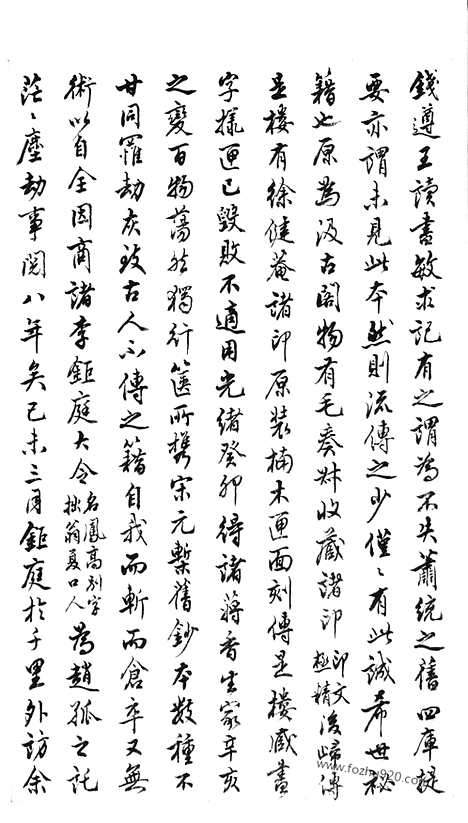 錢遵王讀書敏求記有之謂為不失蕭統之舊四庫提
要亦謂未見此本然則流傳之少僅〻有此誠希世秘
籍也原為汲古閣物有毛奏叔收藏諸印印文極精後歸傳
是樓有徐健菴諸印原裝楠木匣面刻傳是樓藏書
字樣匣已毀敗不適用光緒癸卯得諸蔣香生家辛亥
之變百物蕩然獨行篋所攜宋元槧舊鈔本數種不
甘同罹劫灰致古人不傳之籍自我而斬而倉卒又無
術以自全因商諸李鉅庭大令名鳳高別字拙翁夏口人為趙孤之託
茫〻塵劫事閱八年矣己未三月鉅庭於千里外訪余
www.fozhu920.com